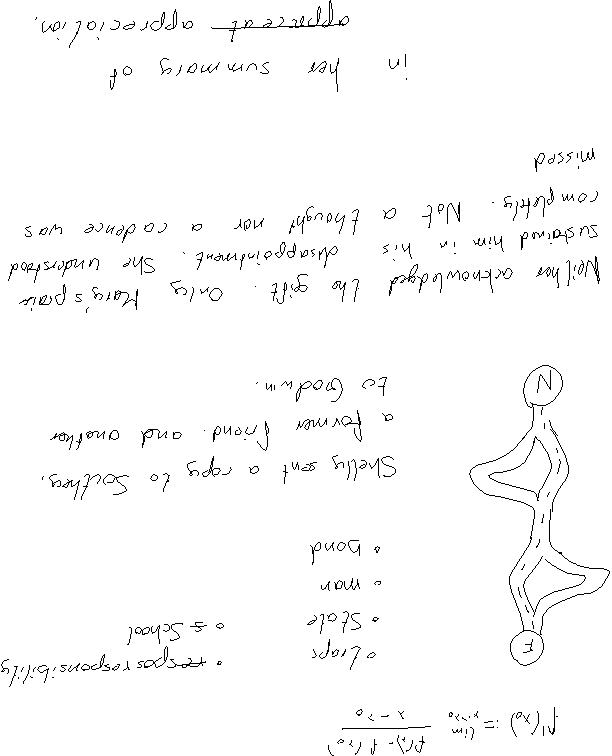 f'(x₀) := lim x→x₀ f(x) - f(x₀) / x - x₀
F
∘ traps
• State
• man
• bond
• respos responsibility
∘ s School
Shelly sent a copy to Southey,
a former friend, and another
to Godwin.
N
Neither acknowledged the gift. Only Mary's praise
sustained him in his disappointment. She understood
completly. Not a thought nor a cadence was
missed
in her summary of
appereat appreciation.